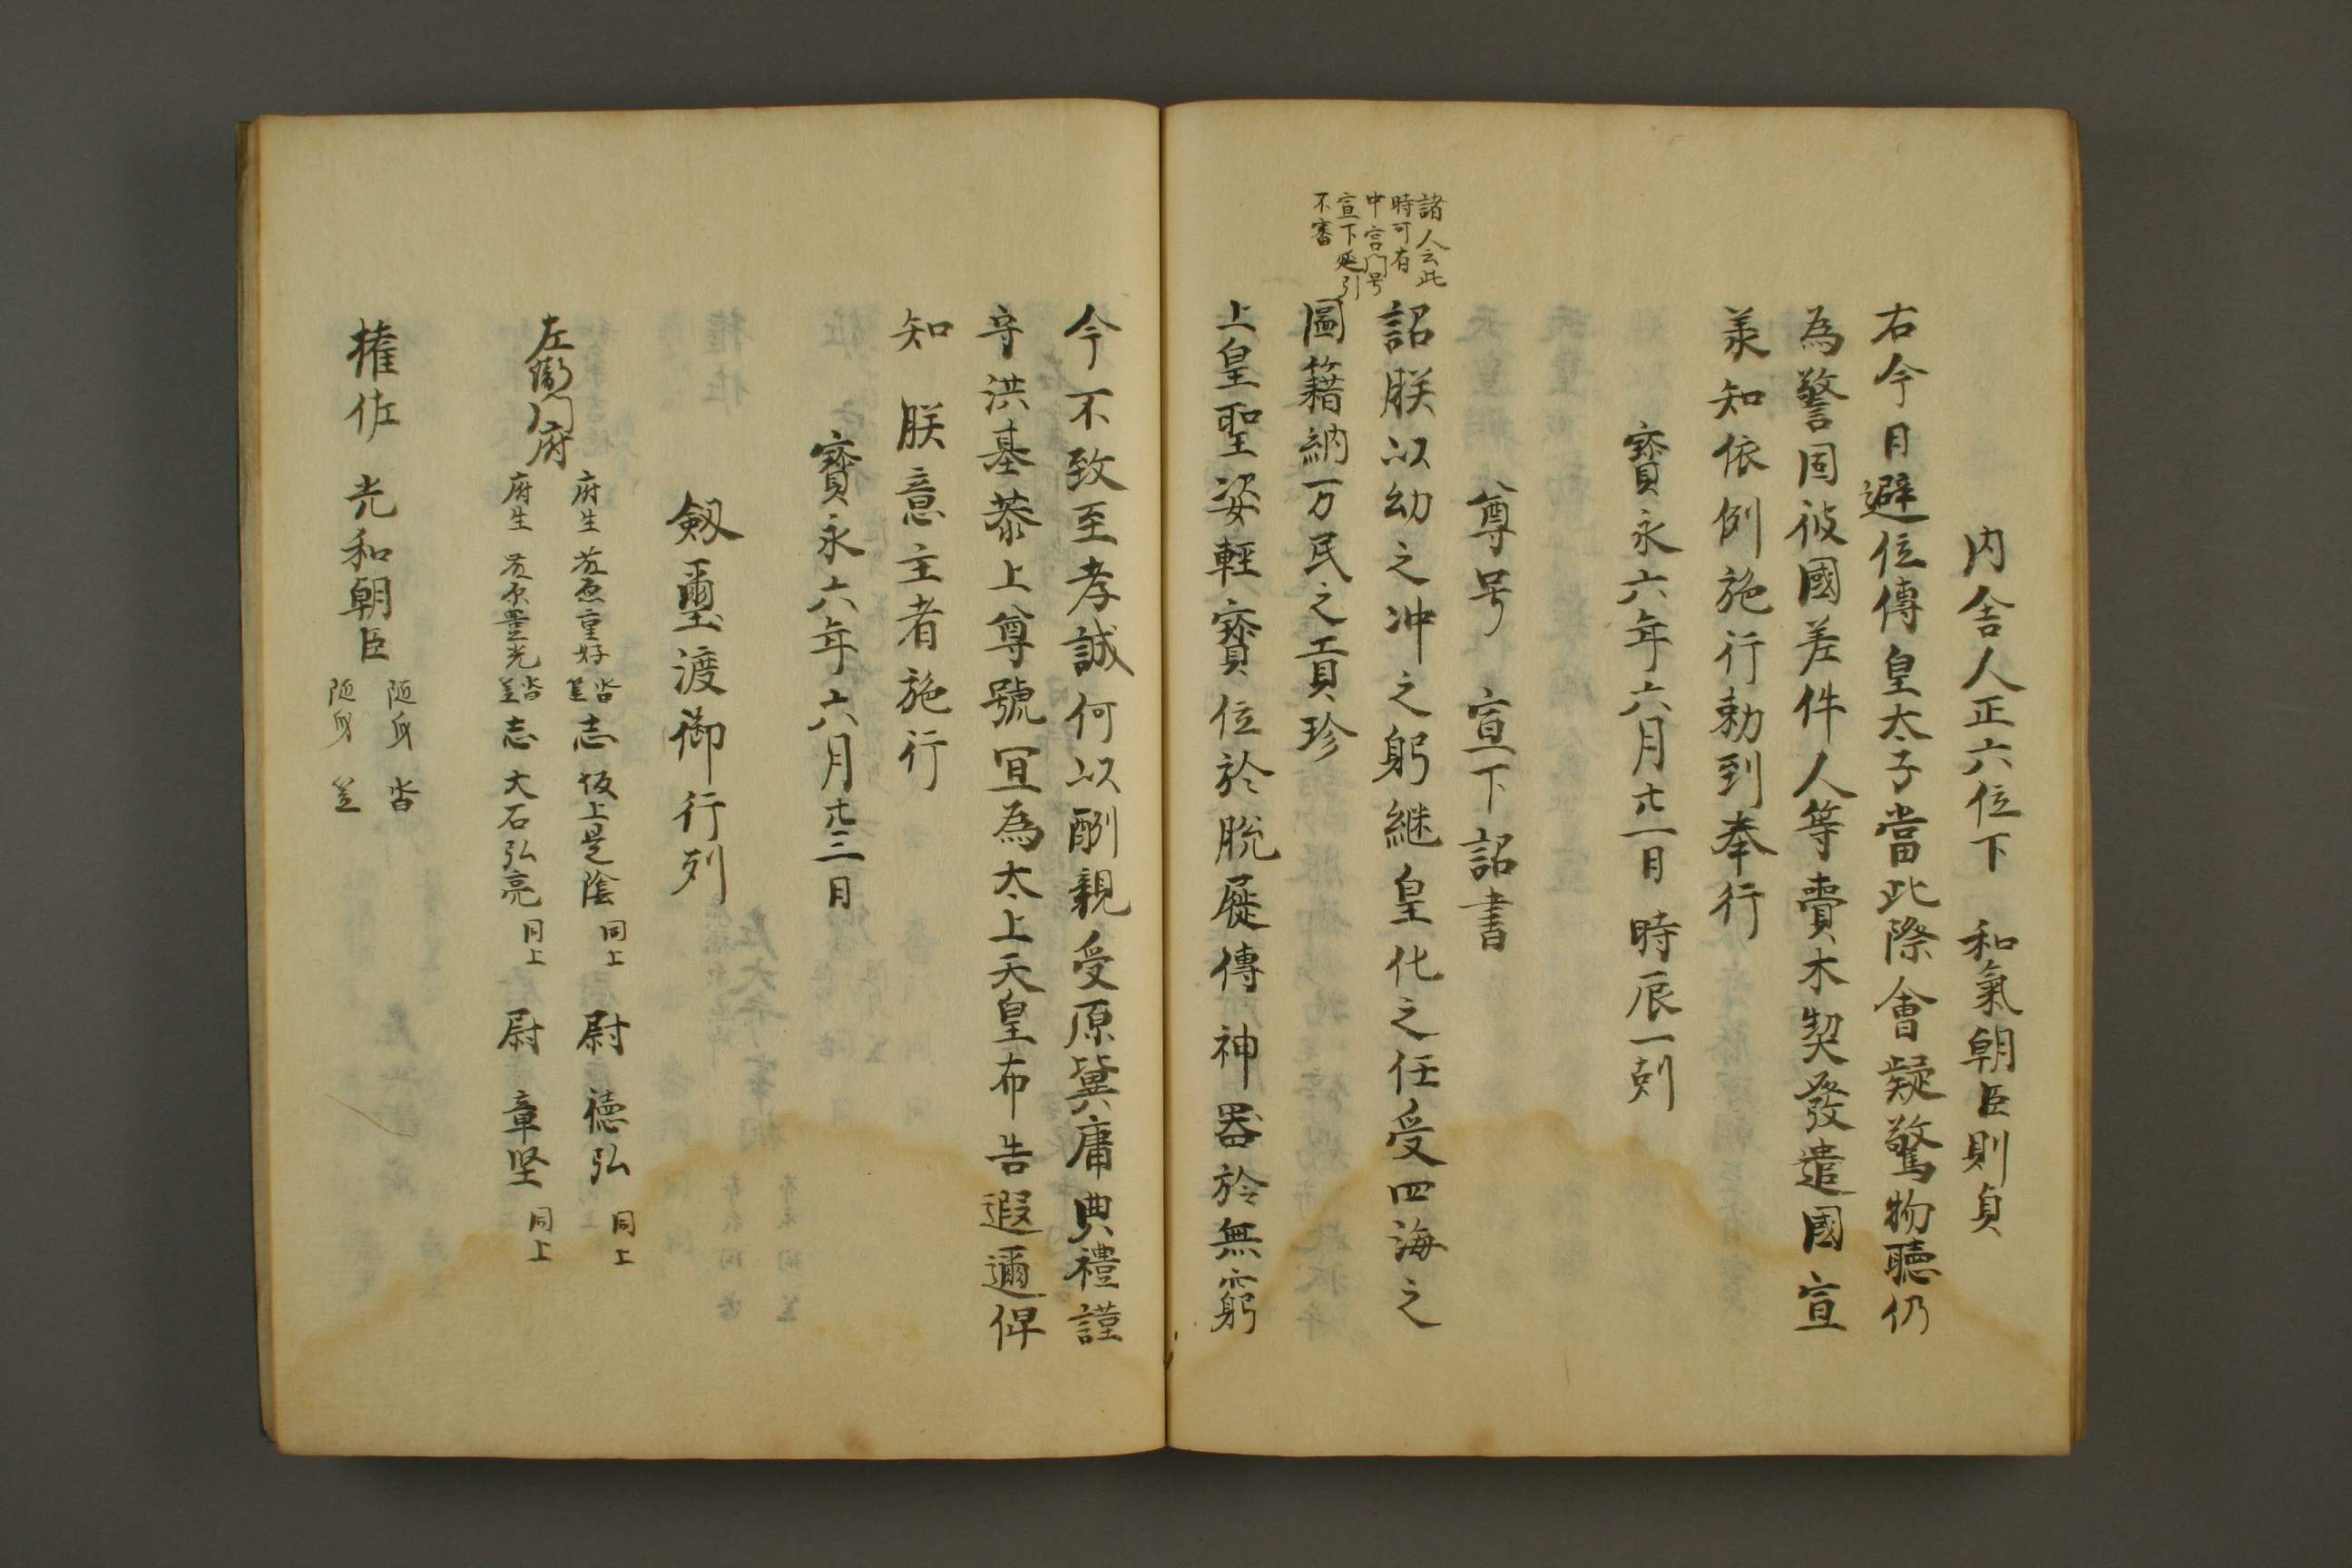 内舎人正六位下　和氣朝臣則貞
右今日避位傳皇太子當此際會疑驚物聽仍
為警固彼國差件人等賷木契發遣國宣
羕知依例施行勅到奉行
寶永六年六月廿一日　時辰一剋
尊号　宣下詔書
諸人云此
時可有
中宮門号
宣下延引
不審
詔朕以幼之冲之躬継皇化之任受四海之
圖籍納万民之貢珍
上皇聖姿輕寶位於脱屣傳　神器於無窮
今不致至孝誠何以酬親受原冀庸典禮謹
守洪基恭上尊號宜為太上天皇布告遐邇俾
知　朕意主者施行
寶永六年六月廿三日
劔璽渡御行列
左衛門府
府生　重好　沓　志　坂上是陰　同上　尉　徳弘　同上
府生　豊光　沓　志　大石弘亮　同上　尉　章堅　同上
権佐　光和朝臣
随身　沓
随身